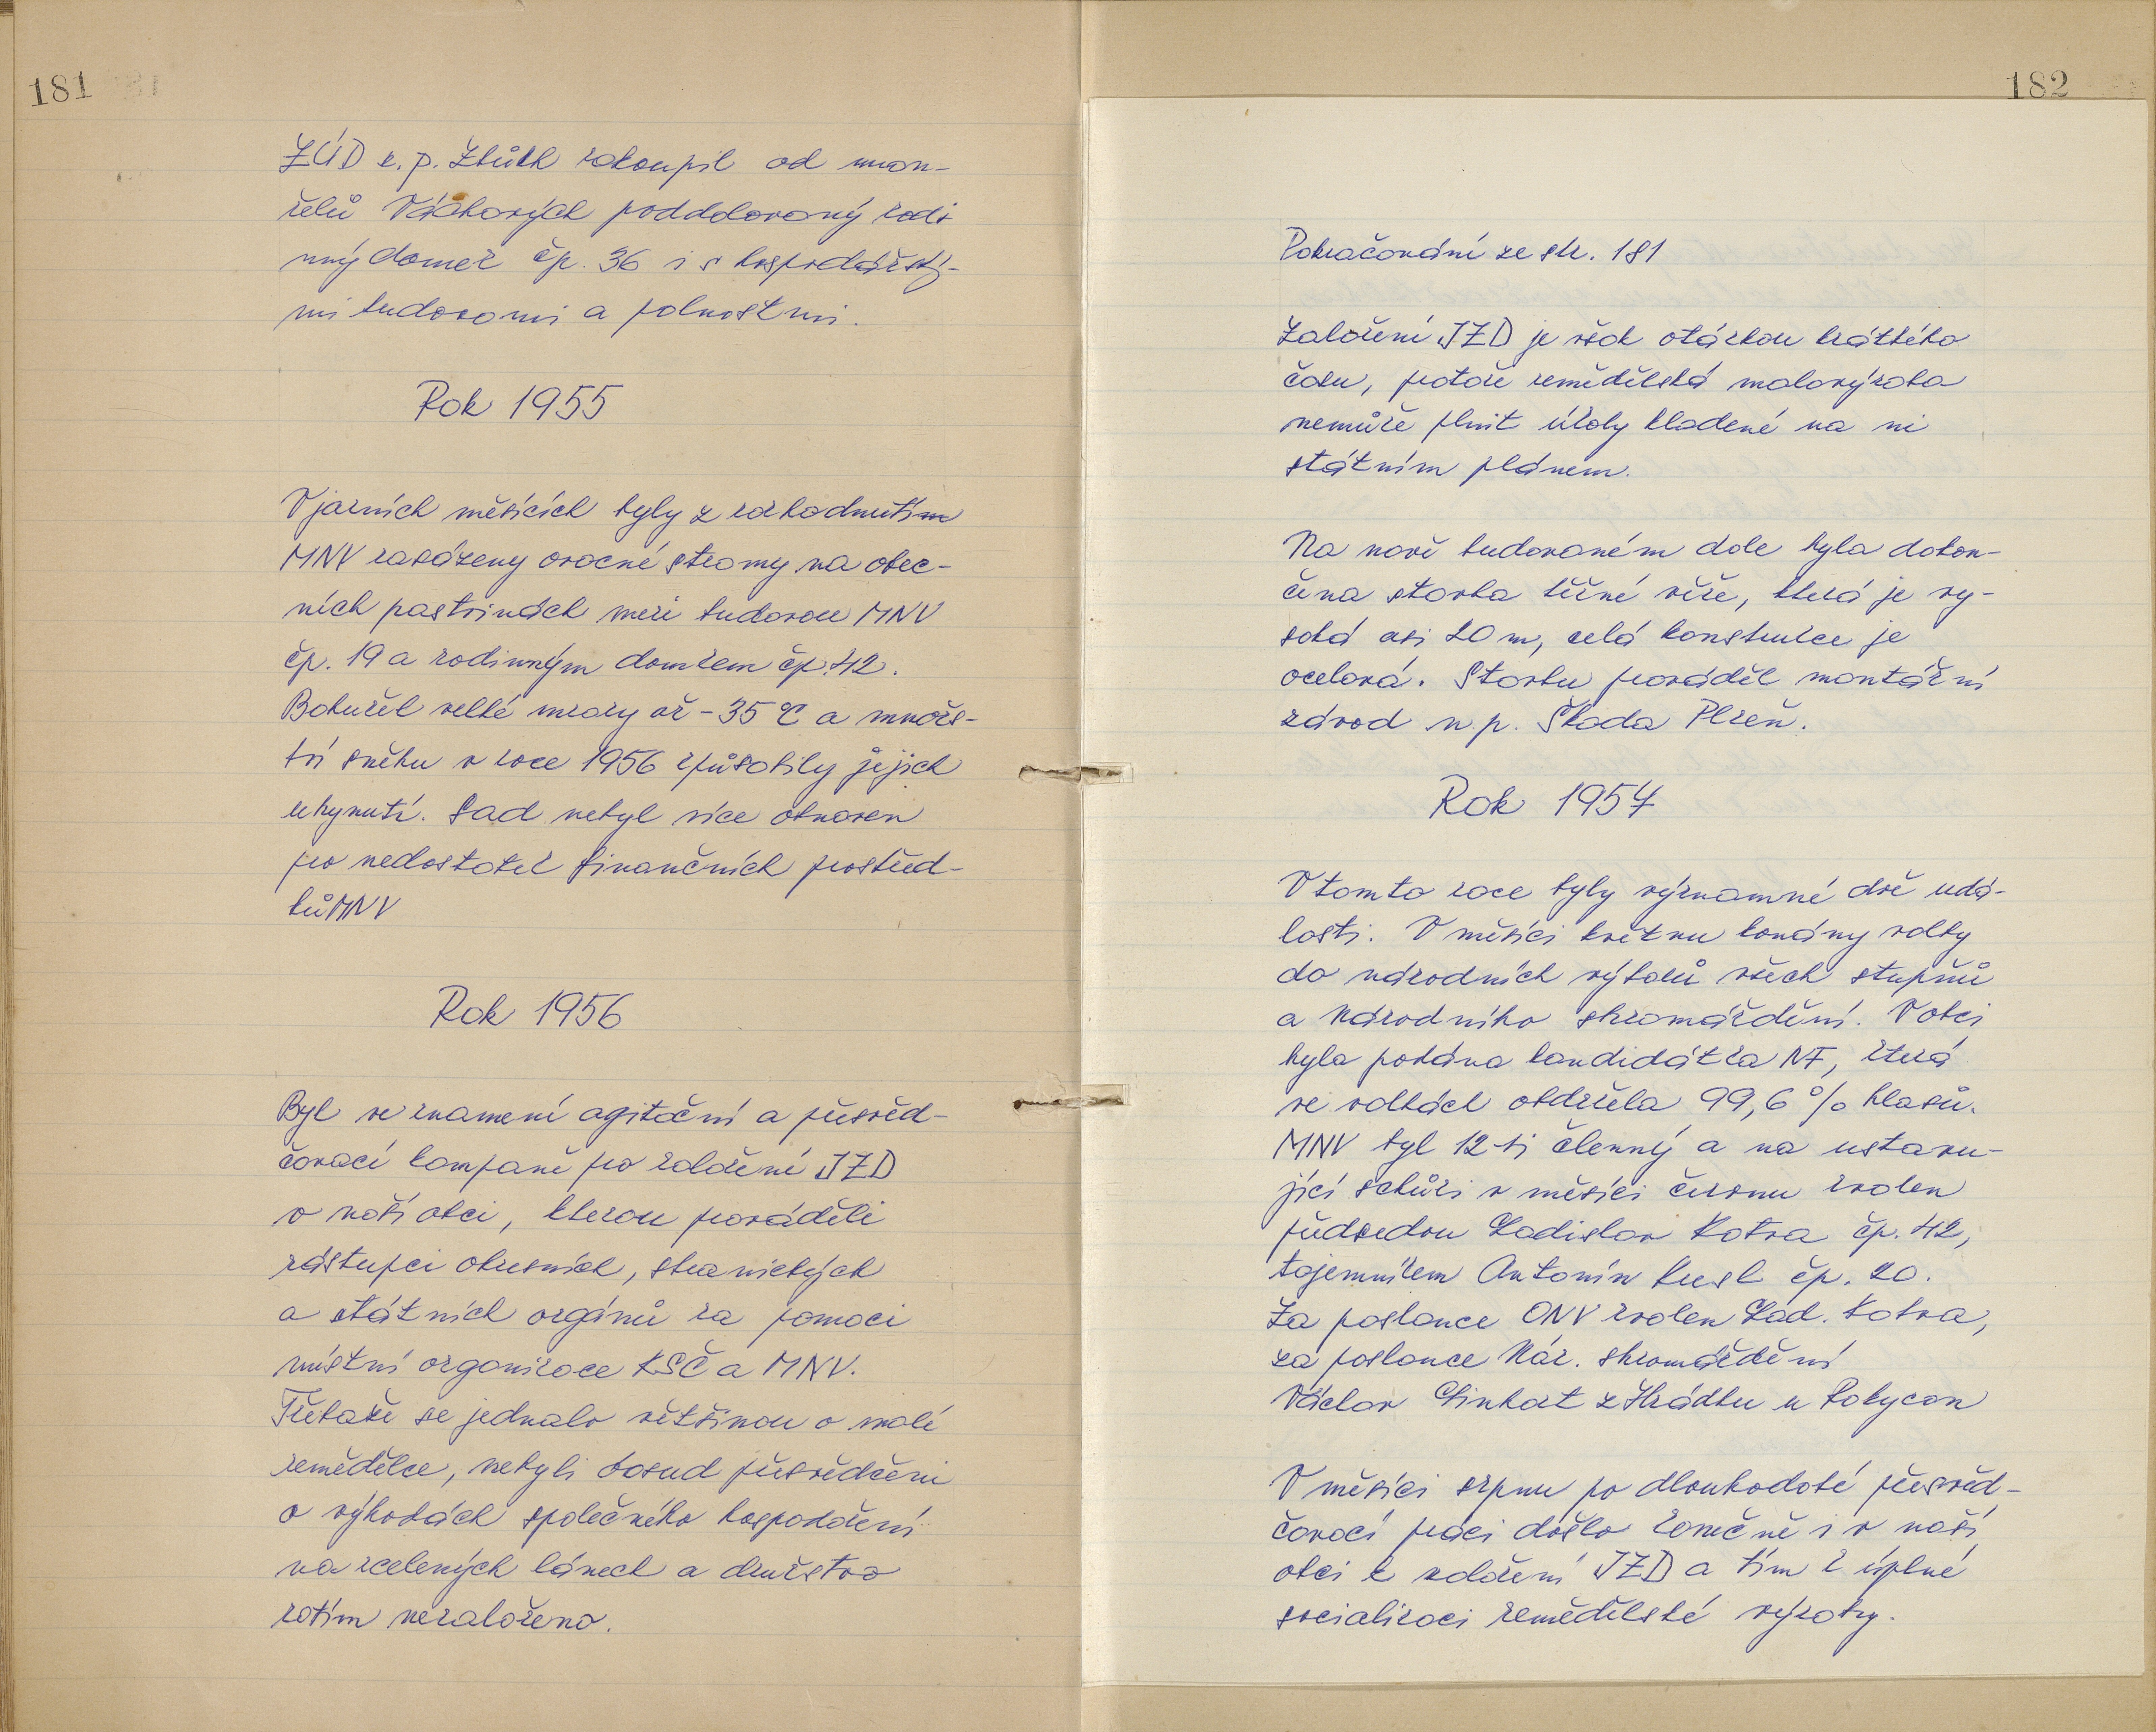 181
ZÚD k. p. Zbůch zakoupil od man-
želů Váchových poddolovaný rodi
nný domek čp. 36 i s hospodářský-
mi budovami a polnostmi.
Rok 1955
V jarních měsících byly z rozhodnutím
MNV zasázeny ovocné stromy na obec-
ních pastvinách mezi budovou MNV
čp. 19 a rodinným domkem čp. 42.
Bohužel velké mrazy až -35 °C a množs-
tví sněhu v roce 1956 způsobily jejich
uhynutí. Sad nebyl více obnoven
pro nedostatek finančních prostřed-
ků MNV
Rok 1956
Byl ve znamení agitační a přesvěd-
čovací kampaně pro založení JZD
v naší obci, kterou prováděli
zástupci okresních, stranických
a státních orgánů za pomoci
místní organizace KSČ a MNV.
Třebaže se jednalo většinou o malé
zemědělce, nebyli dosud přesvědčeni
o výhodách společného hospodaření
na scelených lánech a družstvo
zatím nezaloženo.
182
Pokračování ze str. 181
Založení JZD je však otázkou krátkého
času, protože zemědělská malovýroba
nemůže plnit úkoly kladené na ni
státním plánem.
Na nově budovaném dole byla dokon-
čena stavba těžné věže, která je vy-
soká asi 20 m, celá konstrukce je
ocelová. Stavbu prováděl montážní
závod n. p. Škoda Plzeň.
Rok 1957
V tomto roce byly významné dvě udá-
losti. V měsíci květnu konány volby
do národních výborů všech stupňů
a Národního shromáždění. V obci
byla podána kandidátka NF, která
ve volbách obdržela 99,6 % hlasů.
MNV byl 12-ti členný a na ustavu-
jící schůzi v měsíci červnu zvolen
předsedou Ladislav Kotva čp. 42,
tajemníkem Antonín čp. 20.
Za poslance ONV zvolen Lad. Kotva,
za poslance Nár. shromáždění
Václav Linhart z Hrádku u Rokycan
V měsíci srpnu po dlouhodobé přesvěd-
čovací práci došlo konečně i v naší
obci k založení JZD a tím k úplné
socializaci zemědělské výroby.